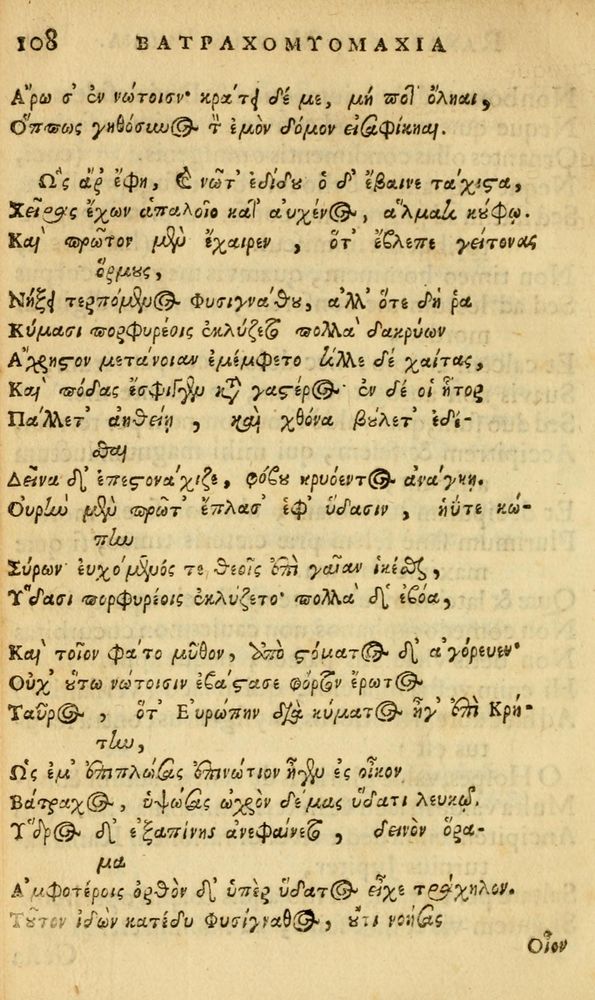 108 ΒΑΤΡΑΧΟΜΥΟΜΑΧΙΑ
Αἴρω σ' ἐν νώτοισιν· κράτει δέ με, μή ποτ' ὄληαι,
Οππως γηθόσυνος τ' ἐμὸν δόμον εἰσαφίκηαι.
Ως ἄρ' ἔφη, καὶ νῶτ' ἐδίδου ὁ δ' ἔβαινε τάχιστα,
Χεῖρας ἔχων ἁπαλοῖο κατ' αὐχένος, ἅλματι κούφῳ.
Καὶ πρῶτον μὲν ἔχαιρεν, ὅτ' ἔβλεπε γείτονας
ὅρμους,
Νήξει τερπόμενος Φυσιγνάθου, ἀλλ' ὅτε δή ῥα
Κύμασι πορφυρέοις ἐκλύζετο πολλὰ δακρύων
Αχρηστον μετάνοιαν ἐμέμφετο τίλλε δὲ χαίτας,
Καὶ πόδας ἔσφιγγεν κατὰ γαστέρος· ἐν δέ οἱ ἦτορ
Πάλλετ' ἀηθείῃ, καὶ χθόνα βούλετ' ἐδέ-
σθαι
Δεῖνα δ' ἐπεστονάχιζε, φόβου κρυόεντος ἀνάγκῃ.
Οὐρὴν μὲν πρῶτ' ἔπλασ' ἐφ' ὕδασιν, ἠΰτε κώ-
πην
Σύρων· εὐχόμενός τε θεοῖς ἐπὶ γαῖαν ἱκέσθαι,
Υδασι πορφυρέοις ἐκλύζετο· πολλὰ δ' ἐβόα,
Καὶ τοῖον φάτο μῦθον, ἀπὸ στόματος δ' ἀγόρευεν·
Οὐχ' οὕτω νώτοισιν ἐβάστασε φόρτον ἔρωτος
Ταῦρος, ὅτ' Εὐρώπην διὰ κύματος ἦγ' ἐπὶ Κρή-
την,
Ως ἔμ' ἐπιπλώσας ἐπινώτιον ἦγεν ἐς οἶκον
Βάτραχος, ὑψώσας ὠχρὸν δέμας ὕδατι λευκῷ.
Υδρος δ' ἐξαπίνης ἀνεφαίνετο, δεινὸν ὅρα-
μα
Αμφοτέροις ὀρθὸν δ' ὑπὲρ ὕδατος εἶχε τράχηλον.
Τοῦτον ἰδὼν κατέδυ Φυσίγναθος, οὔτι νοήσας
Οἷον